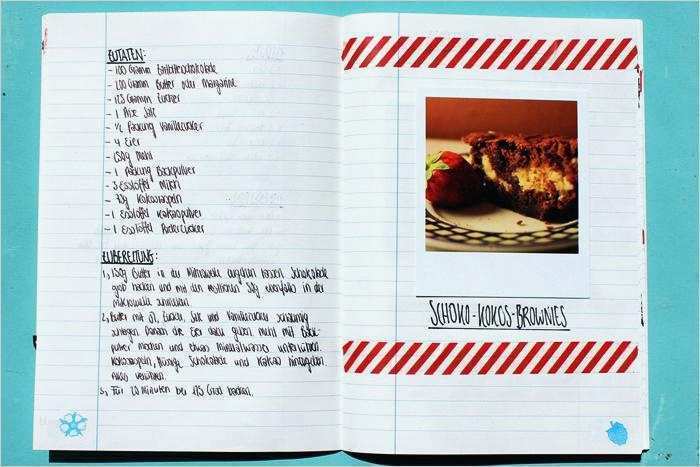 ZUTATEN:
- 100 Gramm Zartbitterschokolade
- 200 Gramm Butter oder Margarine
- 125 Gramm Zucker
- 1 Prise Salz
- 1/2 Packung Vanillezucker
- 4 Eier
- 150g Mehl
- 1 Packung Backpulver
- 3 Esslöffel Milch
- 70g Kokosraspeln
- 1 Esslöffel Kakaopulver
- 1 Esslöffel Puderzucker
ZUBEREITUNG:
1, 150g Butter in der Mikrowelle angehen lassen. Schokolade
grob hacken und mit den restlichen 50g ebenfalls in der
Mikrowelle schmelzen.
2, Butter mit Öl, Zucker, Salz und Vanillezucker schaumig
schlagen. Danach die Eier dazu geben. Mehl mit Back-
pulver mischen und etwas Mineralwasser unterrühren.
Kokosraspeln, flüssige Schokolade und Kakao hinzugeben.
Alles verrühren.
3, Für 20 Minuten bei 175 Grad backen.
SCHOKO-KOKOS-BROWNIES